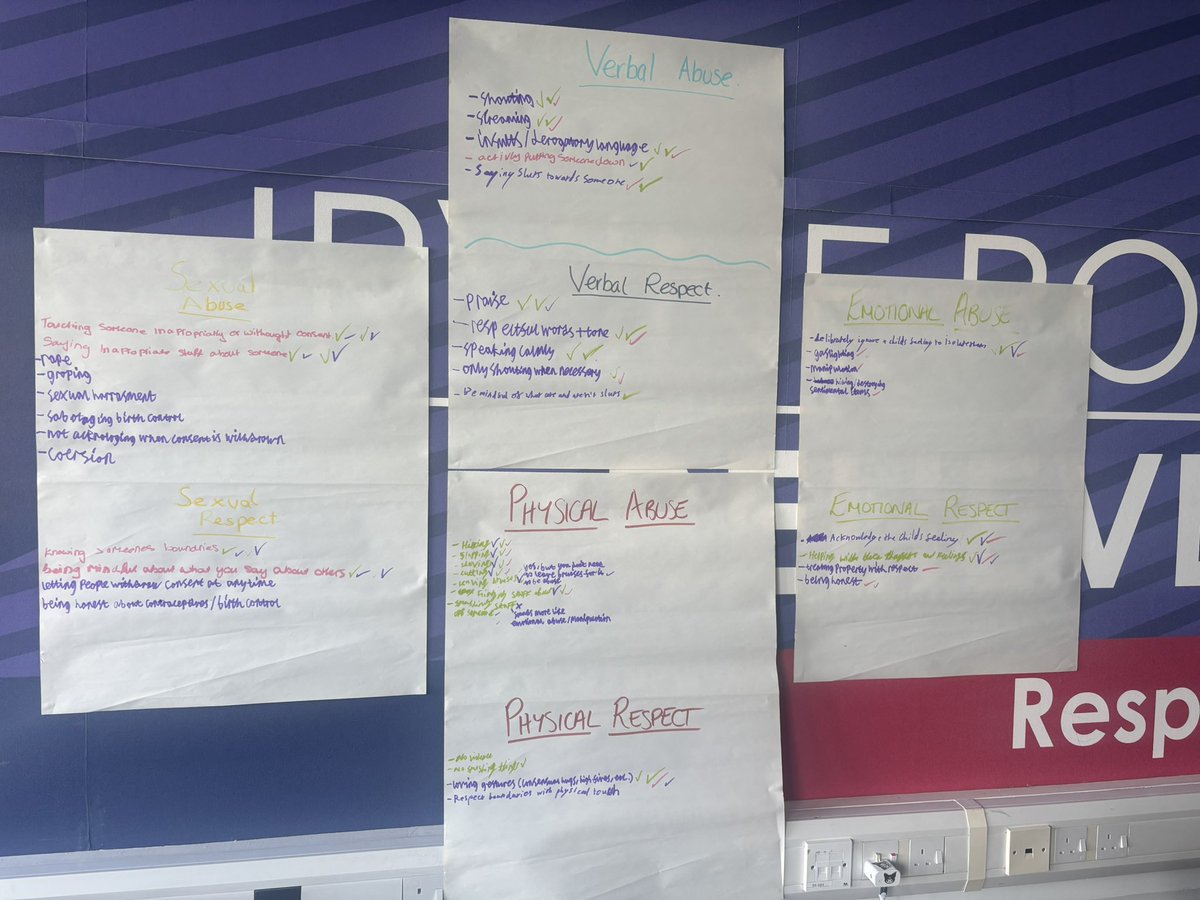 Verbal Abuse.
- Shouting
- Screaming
- insults/derogatory language
- actively putting someone down
- Saying slurs towards someone
Verbal Respect.
- praise
- respectful words + tone
- speaking calmly
- only shouting when necessary
- Be mindful of what are and aren't slurs
Sexual
Abuse
Touching someone inapropriatly or withought consent
Saying inapropriate stuff about someone
- rape
- groping
- sexual harrasment
- sabotaging birth control
- not acknologing when consent is withdrawn
- coersion
Sexual
Respect
knowing someones boundaries
being mindful about what you say about others
letting people withdraw consent at anytime
being honest about contraceptives/birth control
EMOTIONAL ABUSE
- deliberately ignore a childs feeling to
- gaslighting
- manipulation
- hiding/destroying
sentimental items
EMOTIONAL RESPECT
Acknowledge the child's feeling
- Helping with thoughts feelings
- treating property with respect
- being honest
PHYSICAL ABUSE
- Hitting
- Slapping
- cutting
yes, but you dont need
to leave bruises for it
to be abuse
stuff
sounds more like
emotional abuse/manipulation
PHYSICAL RESPECT
- No violence
- No pushing things
- loving gestures (consensual hugs, high fives, etc.)
- Respect boundaries with physical touch
Resp